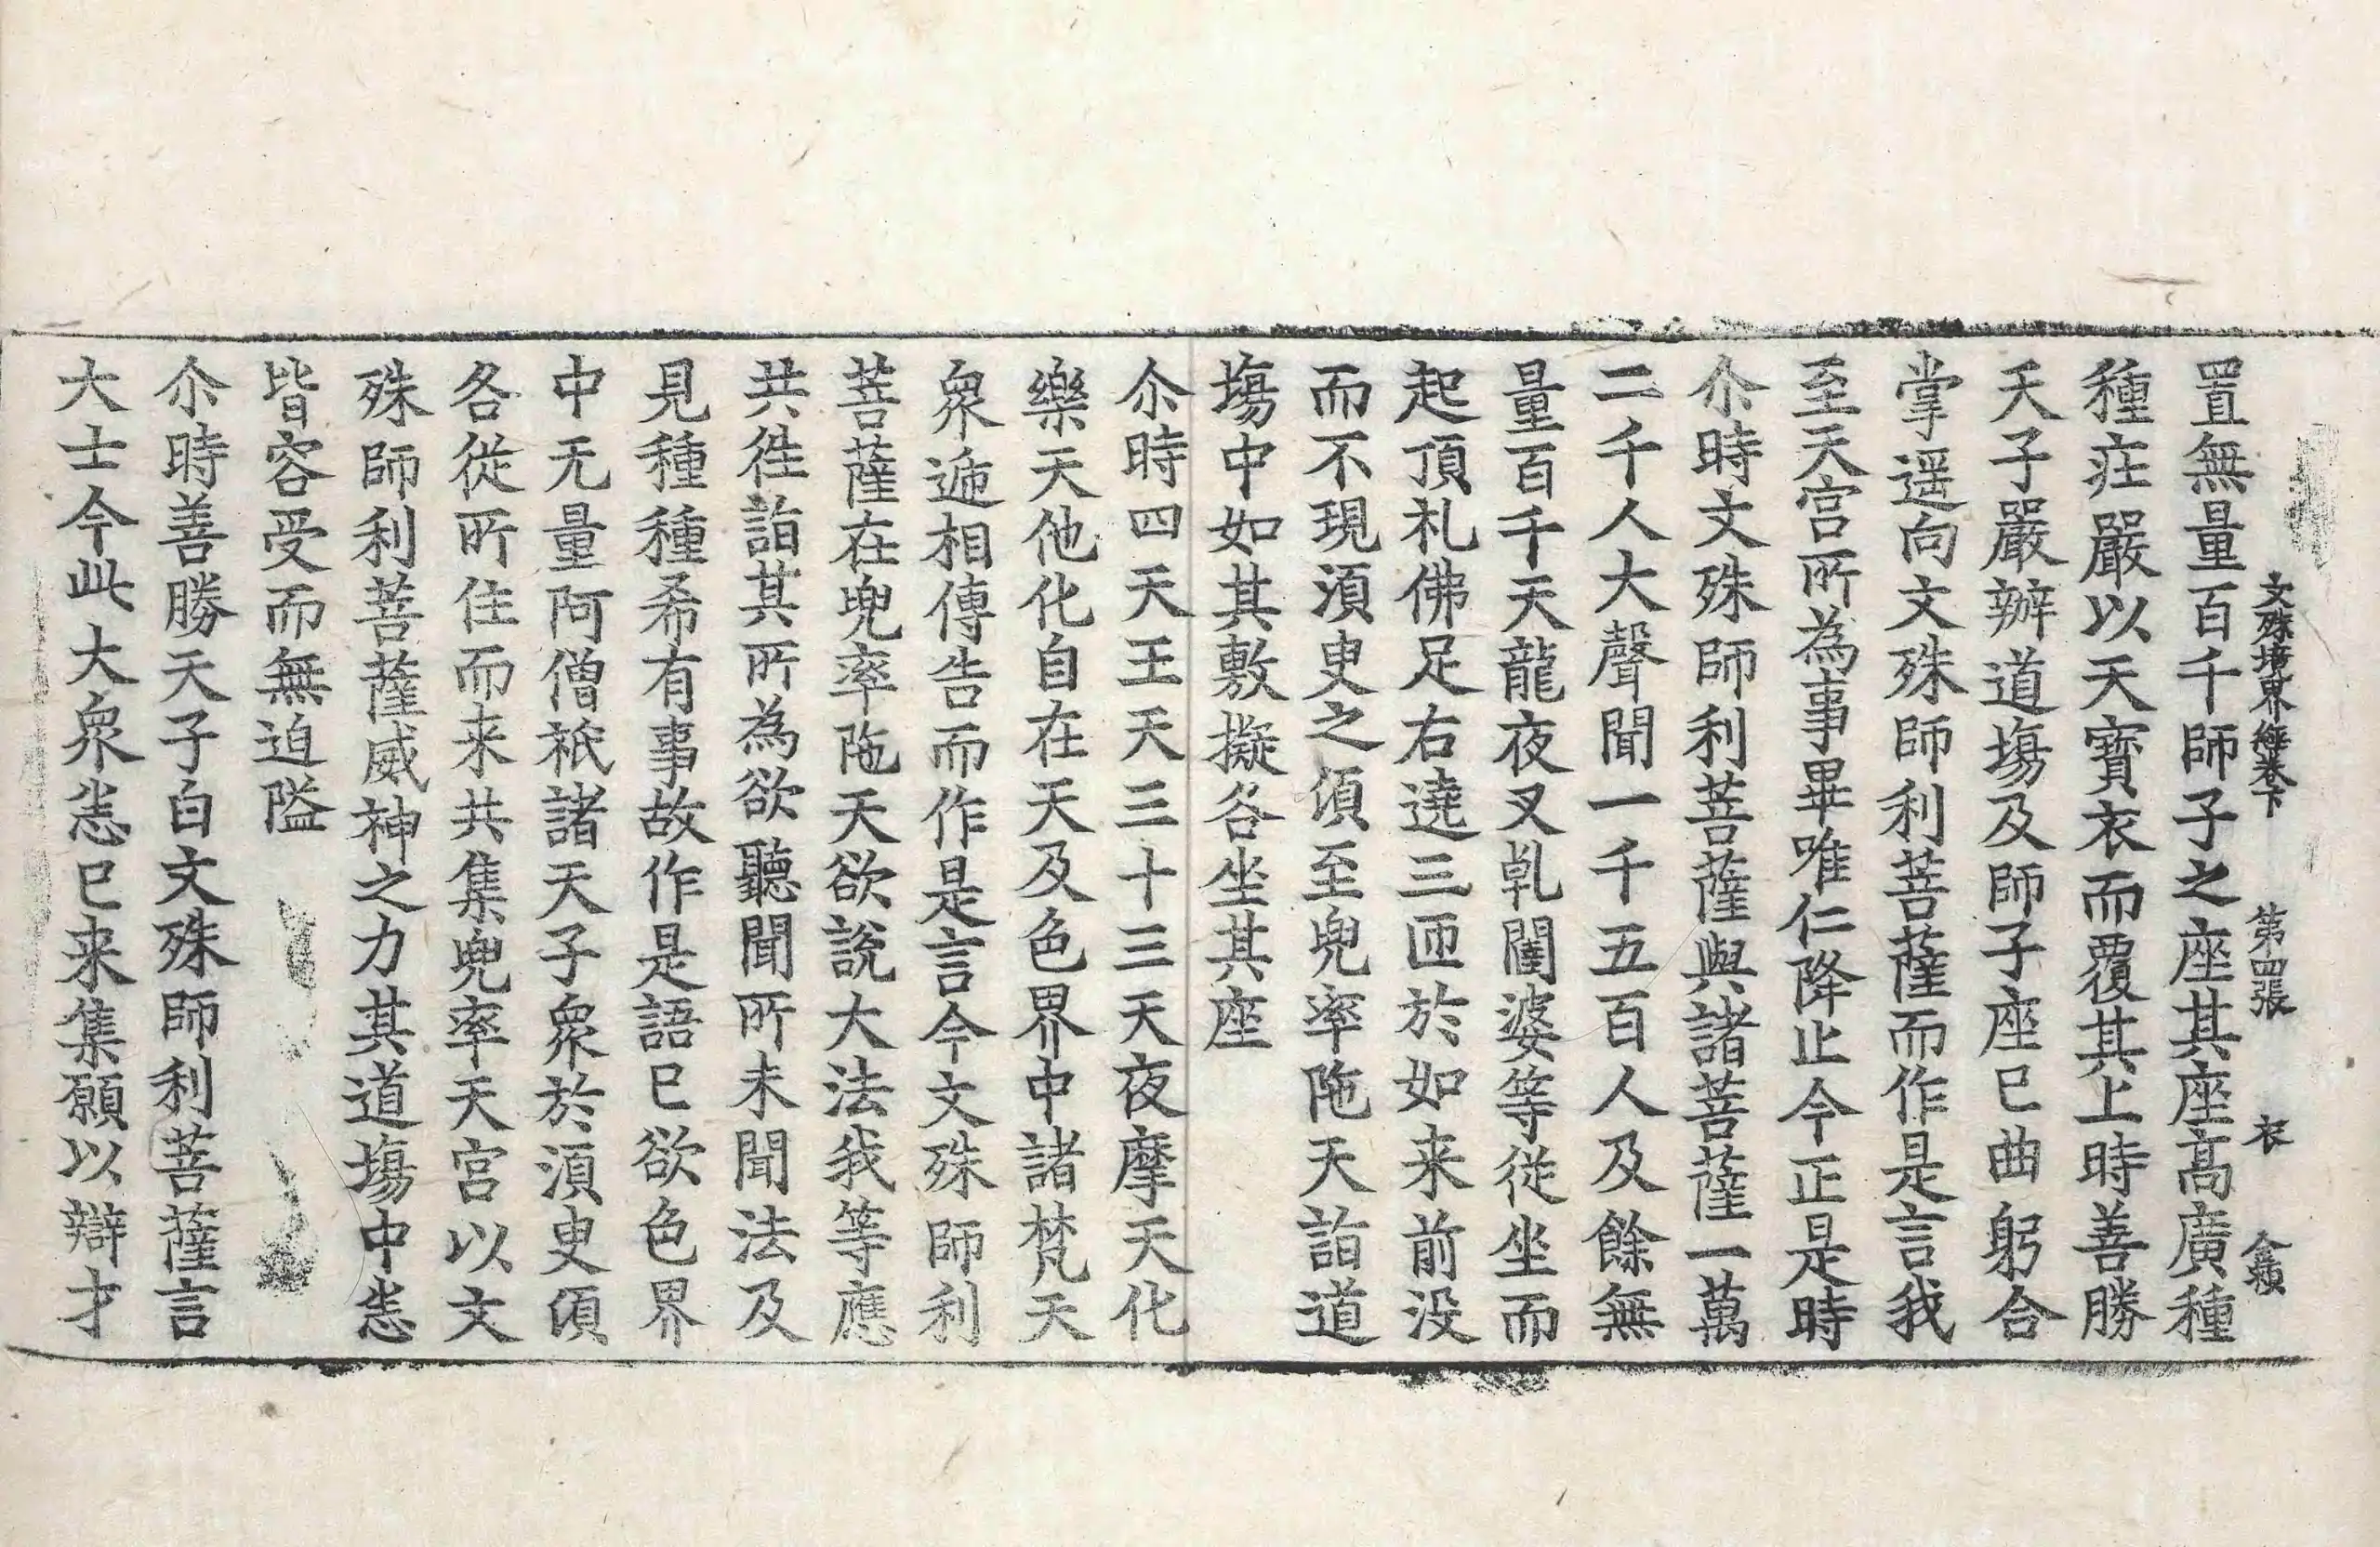 文殊境界經卷下 第四張 衣
置無量百千師子之座其座高廣種
種莊嚴以天寶衣而覆其上時善勝
天子嚴辦道場及師子座已曲躬合
掌遥向文殊師利菩薩而作是言我
至天宫所為事畢唯仁降止今正是時
尒時文殊師利菩薩與諸菩薩一萬
二千人大聲聞一千五百人及餘無
量百千天龍夜叉乹闥婆等從坐而
起頂礼佛足右遶三匝於如来前没
而不現湏臾之須至兜率陁天詣道
場中如其敷擬各坐其座
尒時四天王天三十三天夜摩天化
樂天他化自在天及色界中諸梵天
衆遞相傳告而作是言今文殊師利
菩薩在兜率陁天欲說大法我等應
共徃詣其所為欲聽聞所未聞法及
見種種希有事故作是語已欲色界
中无量阿僧祇諸天子衆於湏臾須
各從所住而来共集兜率天宫以文
殊師利菩薩威神之力其道場中悉
皆容受而無迫隘
尒時善勝天子白文殊師利菩薩言
大士今此大衆悉已来集願以辯才